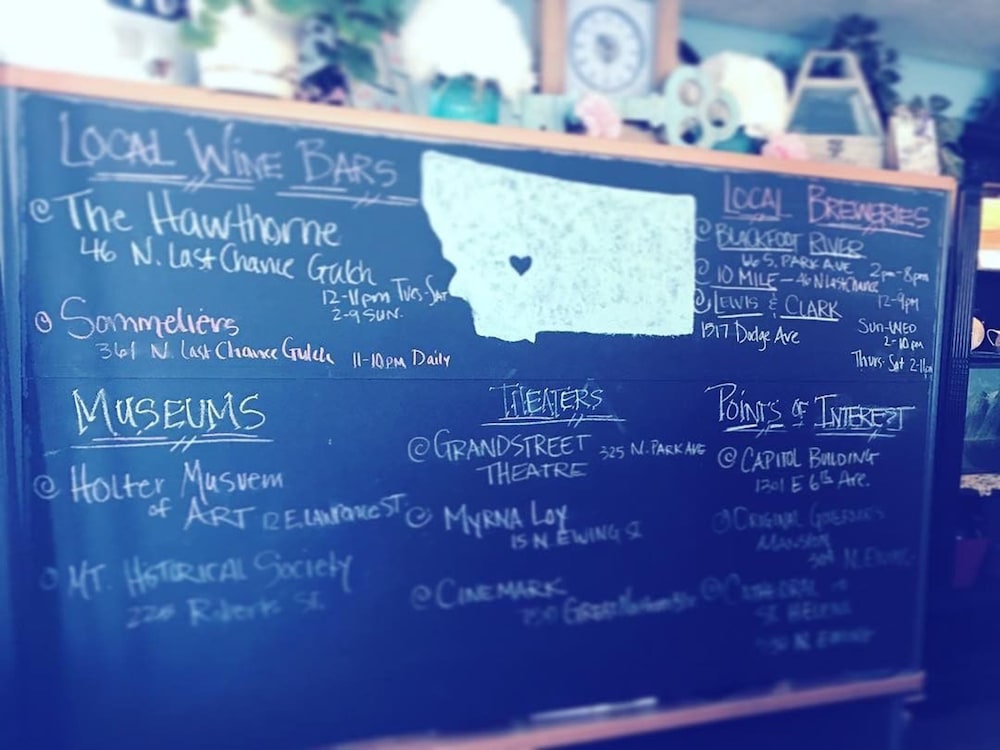 Local Wine Bars
@ The Hawthorne
46 N. Last Chance Gulch
12-11pm Tues-Sat
2-9 Sun.
@ Sommeliers
361 N. Last Chance Gulch 11-10pm Daily
Local Breweries
@ Blackfoot River
66 S. Park Ave 2pm-8pm
@ 10 Mile - 46 N Last Chance
12-9pm
@ Lewis & Clark
1517 Dodge Ave
Sun-Wed
2-10pm
Thurs-Sat 2-11pm
Museums
@ Holter Musuem
of Art 12 E. Lawrence St.
@ MT. Historical Society
225 Roberts St.
Theaters
@ Grandstreet 325 N. Park Ave
Theatre
@ Myrna Loy
15 N. Ewing St
@ Cinemark
750 Great Northern
Points of Interest
@ Capitol Building
1301 E 6th Ave.
@ Original Governors
Mansion
304 N. Ewing
@ Cathedral of
St. Helena
530 N. Ewing